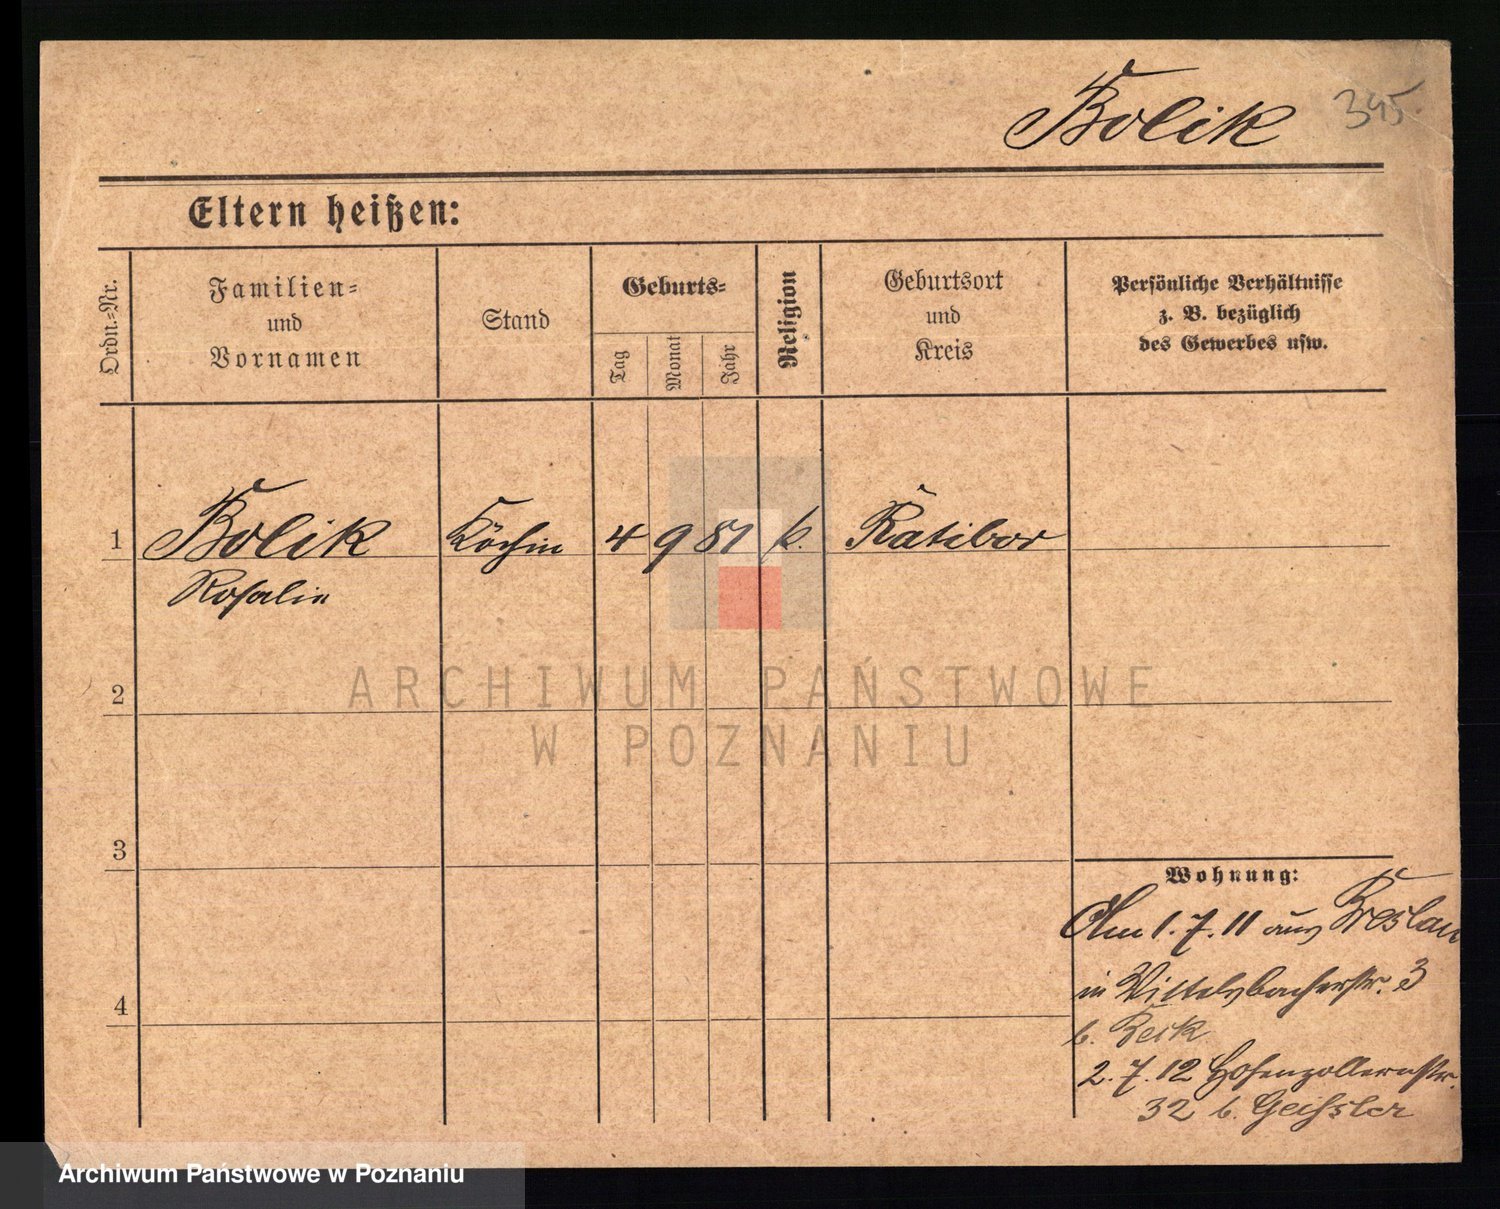 Bolik 395.
Eltern heißen:
Ordn.-Nr.
Familien-
und
Vornamen
Stand
Geburts-
Tag
Monat
Jahr
Religion
Geburtsort
und
Kreis
Persönliche Verhältnisse
z. B. bezüglich
des Gewerbes usw.
1 Bolik Köchin 4 9 81 k. Ratibor
Rosalie
2
3
4
Wohnung:
Am 1.7.11 aus Breslau
in Wittelsbacherstr. 3
b.
2.7.12 Hohenzollernstr.
32 b. Geißler
ARCHIWUM PAŃSTWOWE
W POZNANIU
Archiwum Państwowe w Poznaniu